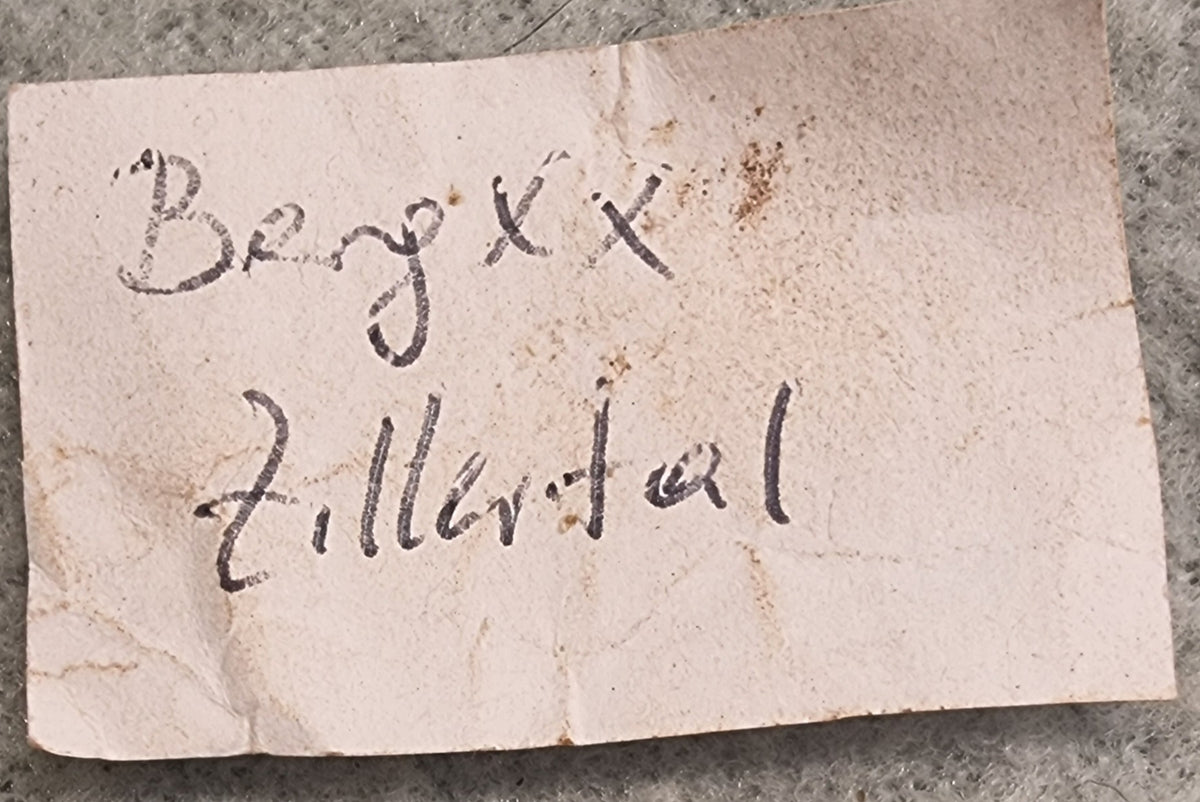 Berg XX
Zillertal